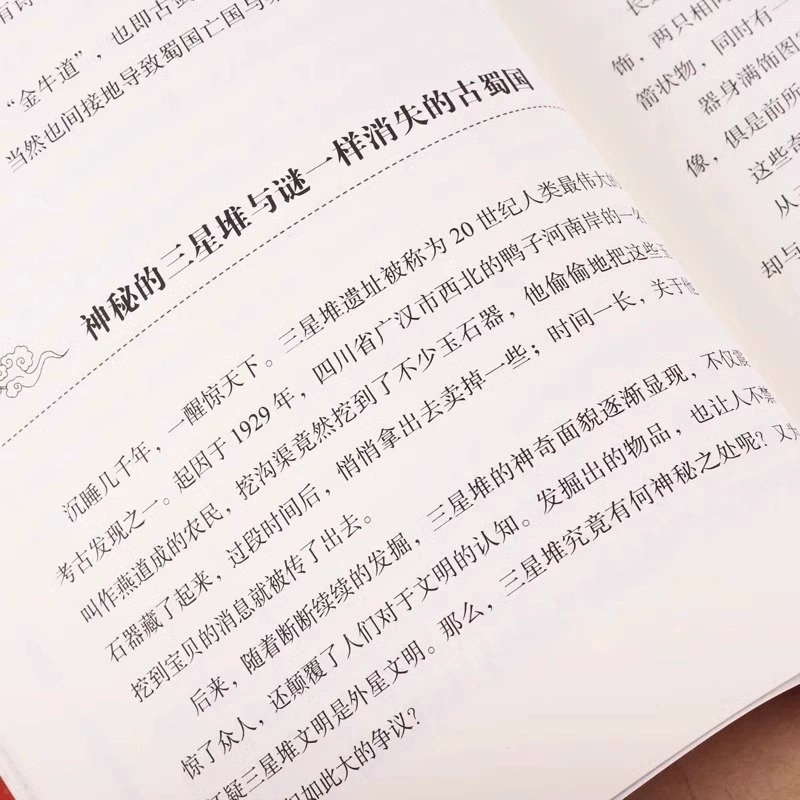 “金牛道”，也即古
当然也间接地导致蜀国亡国与
神秘的三星堆与谜一样消失的古蜀国
沉睡几千年，一醒惊天下。三星堆遗址被称为 20 世纪人类最伟大的
考古发现之一。起因于 1929 年，四川省广汉市西北的鸭子河南岸的一
叫作燕道成的农民，挖沟渠竟然挖到了不少玉石器，他偷偷地把这些玉
石器藏了起来，过段时间后，悄悄拿出去卖掉一些；时间一长，关于他
挖到宝贝的消息就被传了出去。
后来，随着断断续续的发掘，三星堆的神奇面貌逐渐显现，不仅震
惊了众人，还颠覆了人们对于文明的认知。发掘出的物品，也让人不禁
怀疑三星堆文明是外星文明。那么，三星堆究竟有何神秘之处呢？又为
起如此大的争议？
饰，两只相同
箭状物，同时有一
器身满饰图案
像，俱是前所
这些奇
从
却与